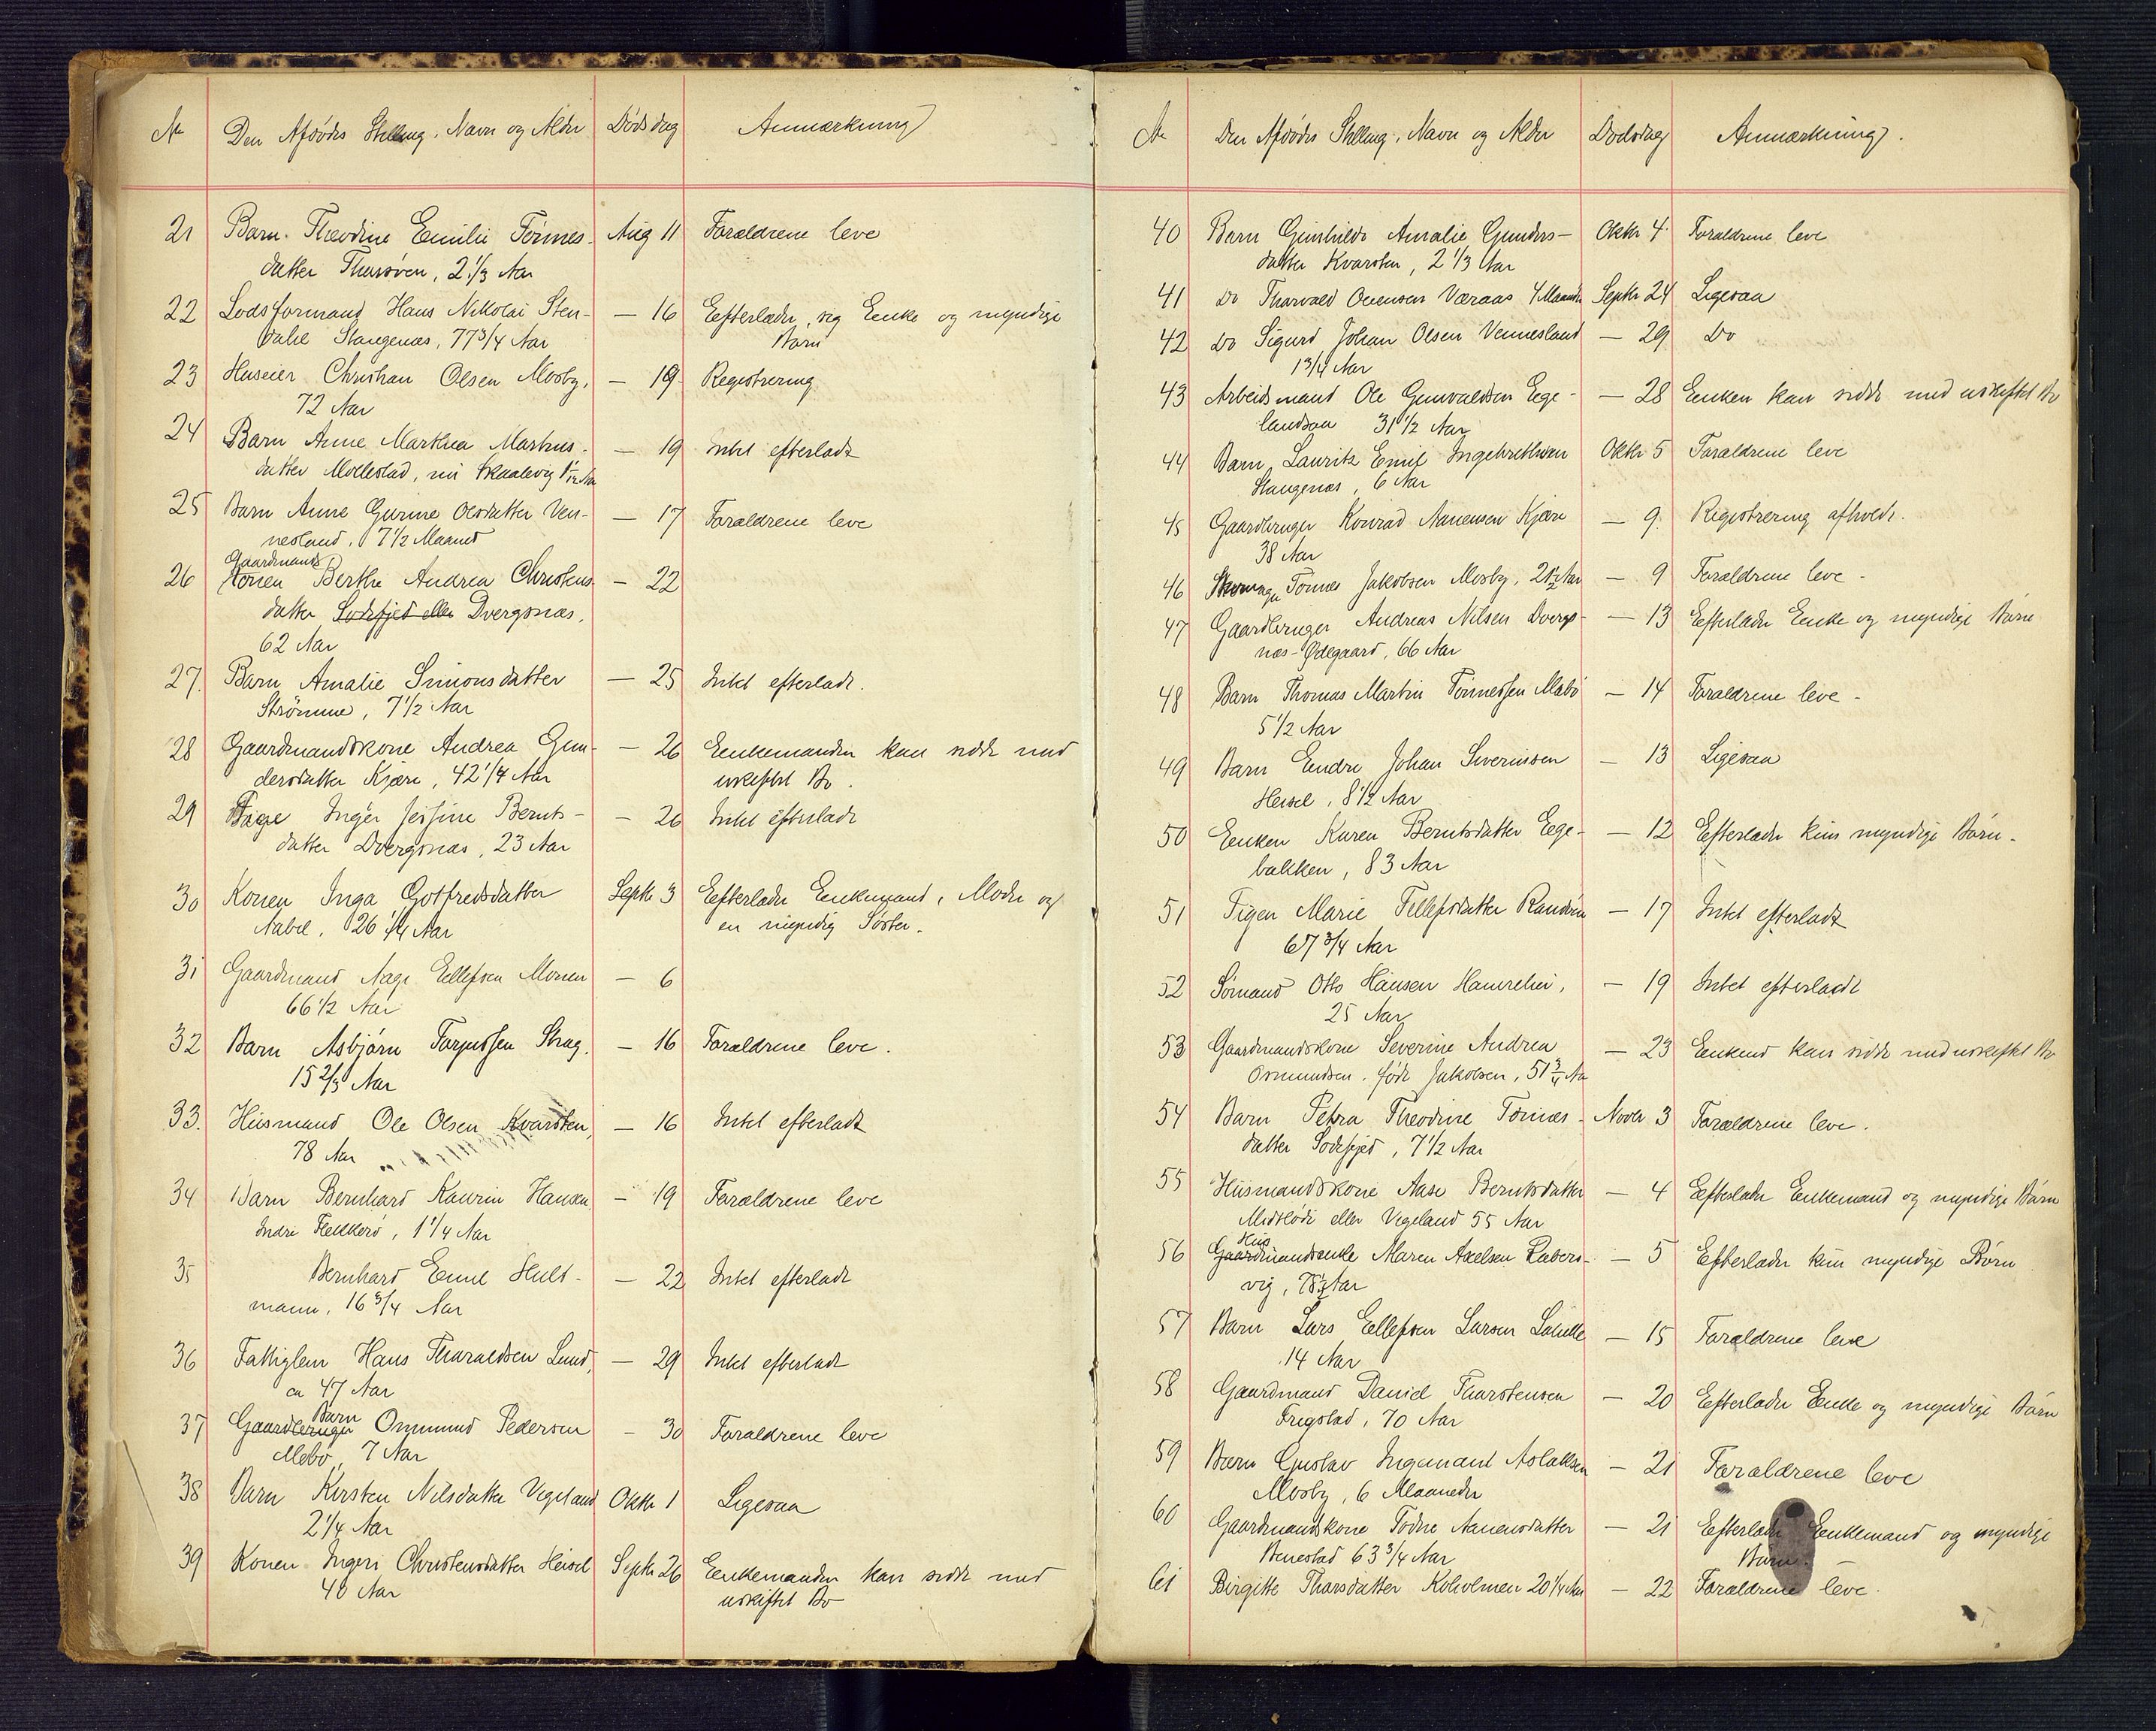 No Den Afdødes Stilling, Navn og Alder Dødsdag Anmærkning
21 Barn Theodine Emilie Tønnes- Aug 11 Forældrene leve
datter Tharsøen, 2 1/3 Aar
22 Lodsformand Hans Nikolai Sten- — 16 Efterlader sig Enke og myndige
dahl Stangenæs, 77 3/4 Aar Børn
23 Huseier Christian Olsen Mosby, — 19 Registrering
72 Aar
24 Barn Anne Marthea Markus- — 19 Intet efterladt
datter Mollestad, nu Skaalevig
25 Barn Anne Gurine Olsdatter Ven- — 17 Forældrene leve
nesland, 7 1/2 Maaned
Gaardmands
26 Konen Berthe Andrea Christens- — 22
datter Sodefjed eller Dvergsnæs,
62 Aar
27. Barn Amalie Simonsdatter — 25 Intet efterladt.
Strømme, 7 1/2 Aar
28 Gaardmandskone Andrea Gun- — 26 Enkemanden kan sidde med
dersdatter Kjære, 42 1/4 Aar uskiftet Bo.
29 Pige Inger Josfine Bernts- — 26 Intet efterladt
datter Dvergsnæs, 23 Aar
30 Konen Inga Gotfredsdatter Septbr 3 Efterlader Enkemand, Moder og
Aabel, 26 1/4 Aar en myndig Søster.
31 Gaardmand Aage Ellefsen Monen — 6
66 1/2 Aar
32 Barn Asbjørn Torjussen Strag, — 16 Forældrene leve.
15 2/3 Aar
33. Husmand Ole Olsen Kvarsten, — 16 Intet efterladt
78 Aar
34 Barn Bernhard Kaurin Hansen — 19 Forældrene leve
Indre Flekkerø, 1 1/4 Aar
35 Bernhard Emil Hult- — 22 Intet efterladt
mann, 16 3/4 Aar
36 Fattiglem Hans Tharaldsen Lund, — 29 Intet efterladt
ca 47 Aar
Barn
37 Gaardbruger Ommund Pedersen — 30 Forældrene leve
Mebø, 7 Aar
38 Barn Kirsten Nilsdatter Vigeland Oktbr 1 Ligesaa
2 1/4 Aar
39 Konen Ingeri Christensdatter Heisel Septbr 26 Enkemanden kan sidde med
40 Aar uskiftet Bo
No Den Afdødes Stilling, Navn og Alder Dødsdag Anmærkning.
40 Barn Gunhilde Amalie Gunders- Oktbr 4 Forældrene leve
datter Kvarsten, 2 1/3 Aar
41 do Tharvald Ouensen Væraas 4 Maaneder Septbr 24 Ligesaa
42 do Sigurd Johan Olsen Vennesland — 29 Do
1 3/4 Aar
43 Arbeidsmand Ole Gunvaldsen Ege- — 28 Enken kan sidde med uskiftet Bo
landsaa 31 1/2 Aar
44 Barn Lauritz Emil Ingebrethsen Oktbr 5 Forældrene leve
Stangenæs, 6 Aar
45 Gaardbruger Konrad Aanensen Kjære — 9. Registrering afholdt.
38 Aar
46 Skomager Tønnes Jakobsen Mosby, 21 1/2 Aar — 9 Forældrene leve -
47 Gaardbruger Andreas Nilsen Dvergs- — 13 Efterlader Enke og myndige Børn
næs-Ødegaard, 66 Aar
48 Barn Thomas Martin Tønnessen Mæbø — 14 Forældrene leve -
5 1/2 Aar
49 Barn Endre Johan Severinsen — 13 Ligesaa
Heisel, 8 1/2 Aar
50 Enken Karen Berntsdatter Ege- — 12 Efterlader kun myndige Børn -
bakken, 83 Aar
51 Pigen Marie Tellefsdatter Randøen — 17 Intet efterladt
67 3/4 Aar
52 Sømand Otto Hansen Hamrehei, — 19 Intet efterladt
25 Aar
53 Gaardmandskone Severine Andrea — 23 Enkemd kan sidde med uskiftet Bo
Osmundsen, født Jakobsen, 51 3/4 Aar
54 Barn Petra Theodine Tønnes- Novbr 3 Forældrene leve.
datter Sodefjed, 7 1/2 Aar
55 Husmandskone Aase Berntsdatter — 4 Efterlader Enkemand og myndige Børn
Midtbøde eller Vegeland 55 Aar
Hus
56 Gaardmandsenke Maren Axelsen Rabers- — 5 Efterlader kun myndige Børn
vig, Aar
57 Barn Lars Ellefsen Larsen — 15 Forældrene leve
14 Aar
58 Gaardmand Daniel Tharstensen — 20 Efterlader Enke og myndige Børn
Frigstad, 70 Aar
59 Barn Gustav Ingemand Aslaksen — 21 Forældrene leve
Mosby, 6 Maaneder
60 Gaardmandskone Todne Aanensdatter — 21 Efterlader Enkemand og myndige
Benestad 63 3/4 Aar Børn.
61 Birgitte Tharsdatter Koholmen 20 1/4 Aar — 22 Forældrene leve.